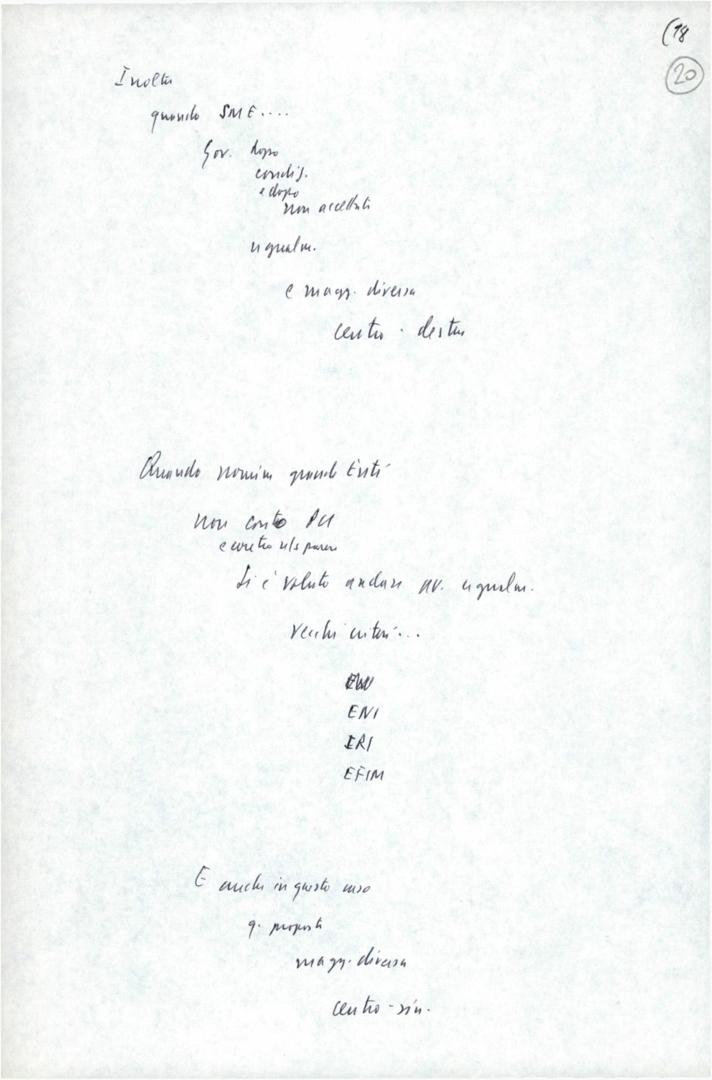 (18
20
Inoltre
quando SME....
Gov. dopo
condiz.
e dopo
non accettati
ugualm.
e magg. diversa
centro - destra
Quando nomine grandi Enti
non conto PCI
e contro n/s parere
Si è voluto andare av. ugualm.
vecchi criteri...
ENI
IRI
EFIM
E anche in questo caso
q. proposta
magg. diversa
centro-sin.